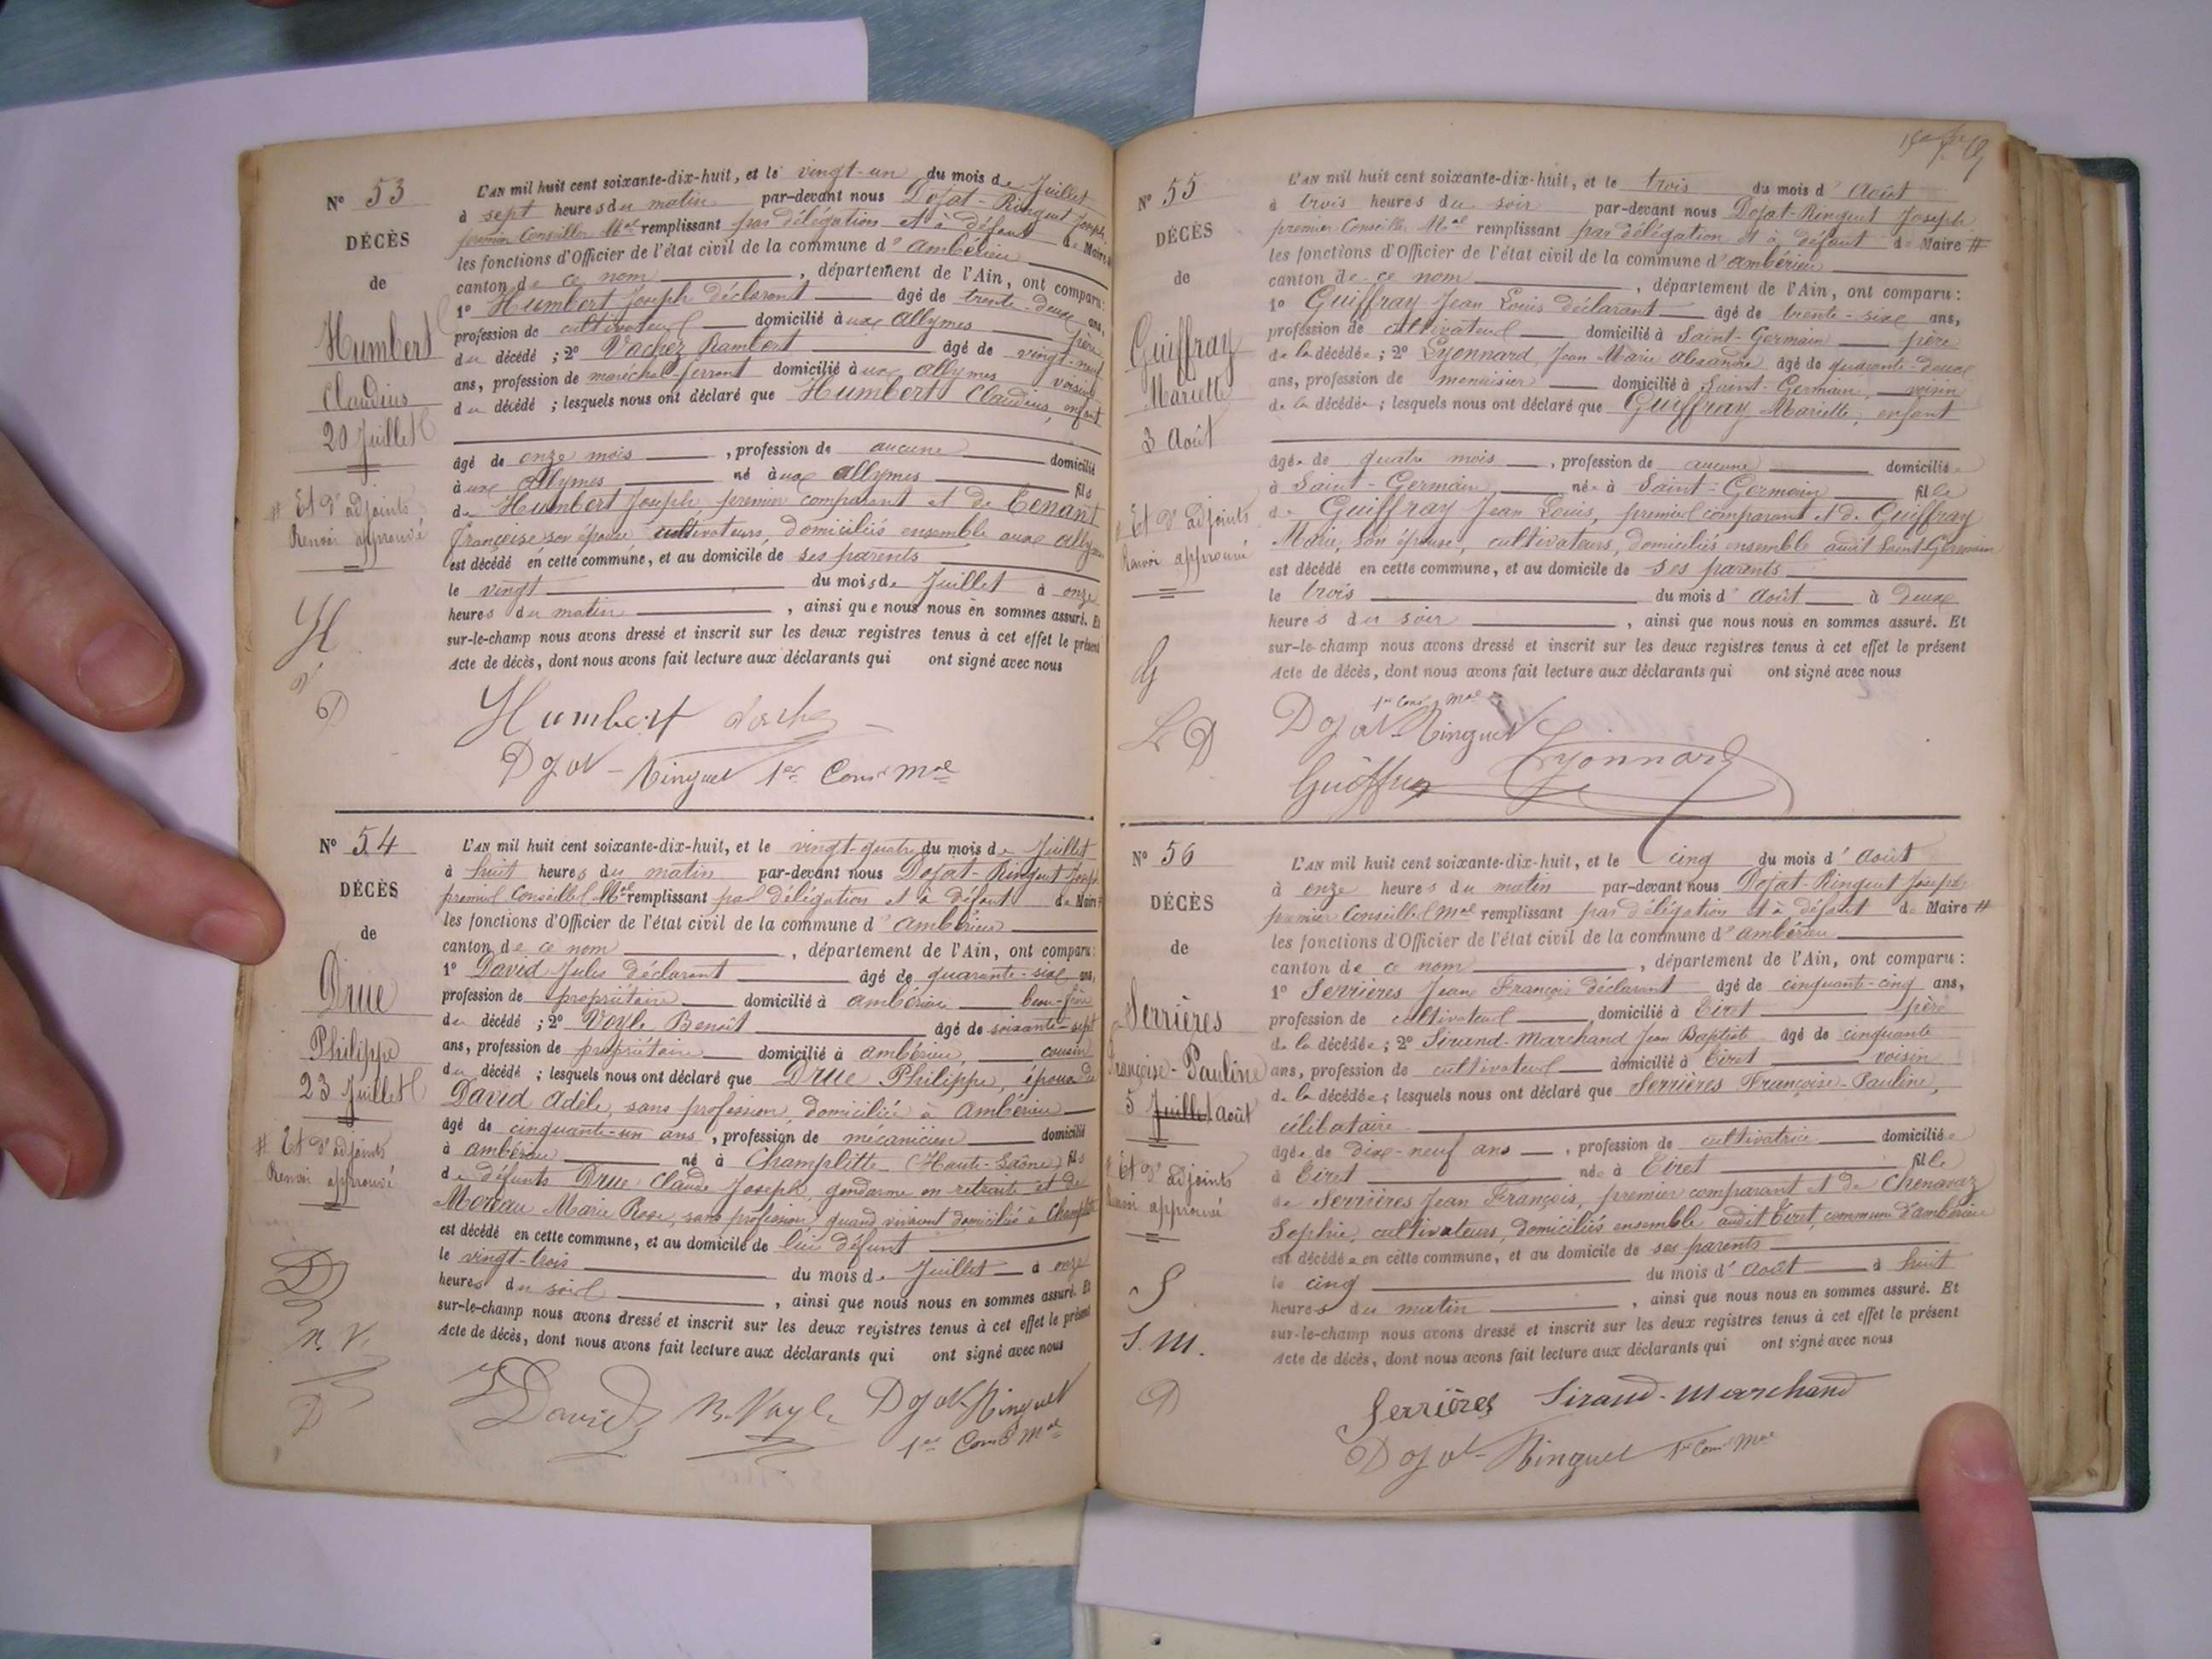 N° 53
DÉCÈS
de
Humbert
Claudius
20 Juillet
# Et d'adjoints
Renvoi approuvé
H
D
L'AN mil huit cent soixante-dix-huit, et le vingt-un du mois de Juillet
à sept heures du matin par-devant nous Dojat-Ringuet Joseph
premier Conseiller Mal remplissant par délégation et à défaut de Maire #
les fonctions d'Officier de l'état civil de la commune d'Ambérieu
canton de ce nom, département de l'Ain, ont comparu:
1° Humbert Joseph déclarant âgé de trente-deux ans,
profession de cultivateur domicilié à ux Allymes père
du décédé; 2° Vachez Rambert âgé de vingt-neuf
ans, profession de maréchal-ferrant domicilié à ux Allymes voisin
du décédé; lesquels nous ont déclaré que Humbert Claudius, enfant
âgé de onze mois, profession de aucune domicilié
à ux Allymes né à ux Allymes fils
de Humbert Joseph, premier comparant et de Tenant
Françoise son épouse cultivateurs, domiciliés ensemble aux Allymes
est décédé en cette commune, et au domicile de ses parents
le vingt du mois de Juillet à onze
heures du matin, ainsi que nous nous en sommes assuré. Et
sur-le-champ nous avons dressé et inscrit sur les deux registres tenus à cet effet le présent
Acte de décès, dont nous avons fait lecture aux déclarants qui ont signé avec nous
Humbert
Dojat-Ringuet 1er Cons Mal
N° 54
DÉCÈS
de
Drue
Philippe
23 Juillet
# Et d'adjoints
Renvoi approuvé
D
B. V.
D
L'AN mil huit cent soixante-dix-huit, et le vingt-quatre du mois de Juillet
à huit heures du matin par-devant nous Dojat-Ringuet Joseph
premier Conseiller Mal remplissant par délégation et à défaut de Maire #
les fonctions d'Officier de l'état civil de la commune d'Ambérieu
canton de ce nom, département de l'Ain, ont comparu:
1° David Jules déclarant âgé de quarante-six ans,
profession de propriétaire domicilié à Ambérieu beau-frère
du décédé; 2° Voyle Benoît âgé de soixante-sept
ans, profession de propriétaire domicilié à Ambérieu, cousin
du décédé; lesquels nous ont déclaré que Drue Philippe, époux de
David Adèle, sans profession, domiciliée à Ambérieu
âgé de cinquante-un ans, profession de mécanicien domicilié
à Ambérieu né à Champlitte (Haute-Saône) fils
de défunts Drue Claude Joseph, gendarme en retraite et de
Moreau Marie Rose, sans profession, quand vivaient domiciliés à Champlitte
est décédé en cette commune, et au domicile de lui défunt
le vingt-trois du mois de Juillet à onze
heures du soir, ainsi que nous nous en sommes assuré. Et
sur-le-champ nous avons dressé et inscrit sur les deux registres tenus à cet effet le présent
Acte de décès, dont nous avons fait lecture aux déclarants qui ont signé avec nous
David B. Voyle Dojat-Ringuet
1er Cons Mal
N° 55
DÉCÈS
de
Guiffray
Mariette
3 Août
# Et d'adjoints
Renvoi approuvé
G
L D
L'AN mil huit cent soixante-dix-huit, et le trois du mois d'Août
à trois heures du soir par-devant nous Dojat-Ringuet Joseph
premier Conseiller Mal remplissant par délégation et à défaut de Maire #
les fonctions d'Officier de l'état civil de la commune d'Ambérieu
canton de ce nom, département de l'Ain, ont comparu:
1° Guiffray Jean Louis déclarant âgé de trente-six ans,
profession de cultivateur domicilié à Saint-Germain père
de la décédée; 2° Lyonnard Jean Marie Alexandre âgé de quarante-deux
ans, profession de menuisier domicilié à Saint-Germain, voisin
de la décédée; lesquels nous ont déclaré que Guiffray Mariette, enfant
âgée de quatre mois, profession de aucune domiciliée
à Saint-Germain née à Saint-Germain fille
de Guiffray Jean Louis, premier comparant et de Guiffray
Marie, son épouse, cultivateurs, domiciliés ensemble audit Saint-Germain
est décédé en cette commune, et au domicile de ses parents
le trois du mois d'Août à deux
heures du soir, ainsi que nous nous en sommes assuré. Et
sur-le-champ nous avons dressé et inscrit sur les deux registres tenus à cet effet le présent
Acte de décès, dont nous avons fait lecture aux déclarants qui ont signé avec nous
1er Cons Mal
Dojat-Ringuet Lyonnard
Guiffray
N° 56
DÉCÈS
de
Serrières
Françoise-Pauline
5 Juillet Août
# Et d'adjoints
Renvoi approuvé
S
S. M.
D
L'AN mil huit cent soixante-dix-huit, et le cinq du mois d'Août
à onze heures du matin par-devant nous Dojat-Ringuet Joseph
premier Conseiller Mal remplissant par délégation et à défaut de Maire #
les fonctions d'Officier de l'état civil de la commune d'Ambérieu
canton de ce nom, département de l'Ain, ont comparu:
1° Serrières Jean François déclarant âgé de cinquante-cinq ans,
profession de cultivateur, domicilié à Tiret père
de la décédée; 2° Sirand-Marchand Jean Baptiste âgé de cinquante
ans, profession de cultivateur domicilié à Tiret voisin
de la décédée; lesquels nous ont déclaré que Serrières Françoise-Pauline,
célibataire
âgée de dix-neuf ans, profession de cultivatrice domiciliée
à Tiret née à Tiret fille
de Serrières Jean François, premier comparant et de Chenavaz
Sophie, cultivateurs, domiciliés ensemble audit Tiret, commune d'Ambérieu
est décédée en cette commune, et au domicile de ses parents
le cinq du mois d'Août à huit
heures du matin, ainsi que nous nous en sommes assuré. Et
sur-le-champ nous avons dressé et inscrit sur les deux registres tenus à cet effet le présent
Acte de décès, dont nous avons fait lecture aux déclarants qui ont signé avec nous
Serrières Sirand-Marchand
Dojat-Ringuet 1er Cons Mal